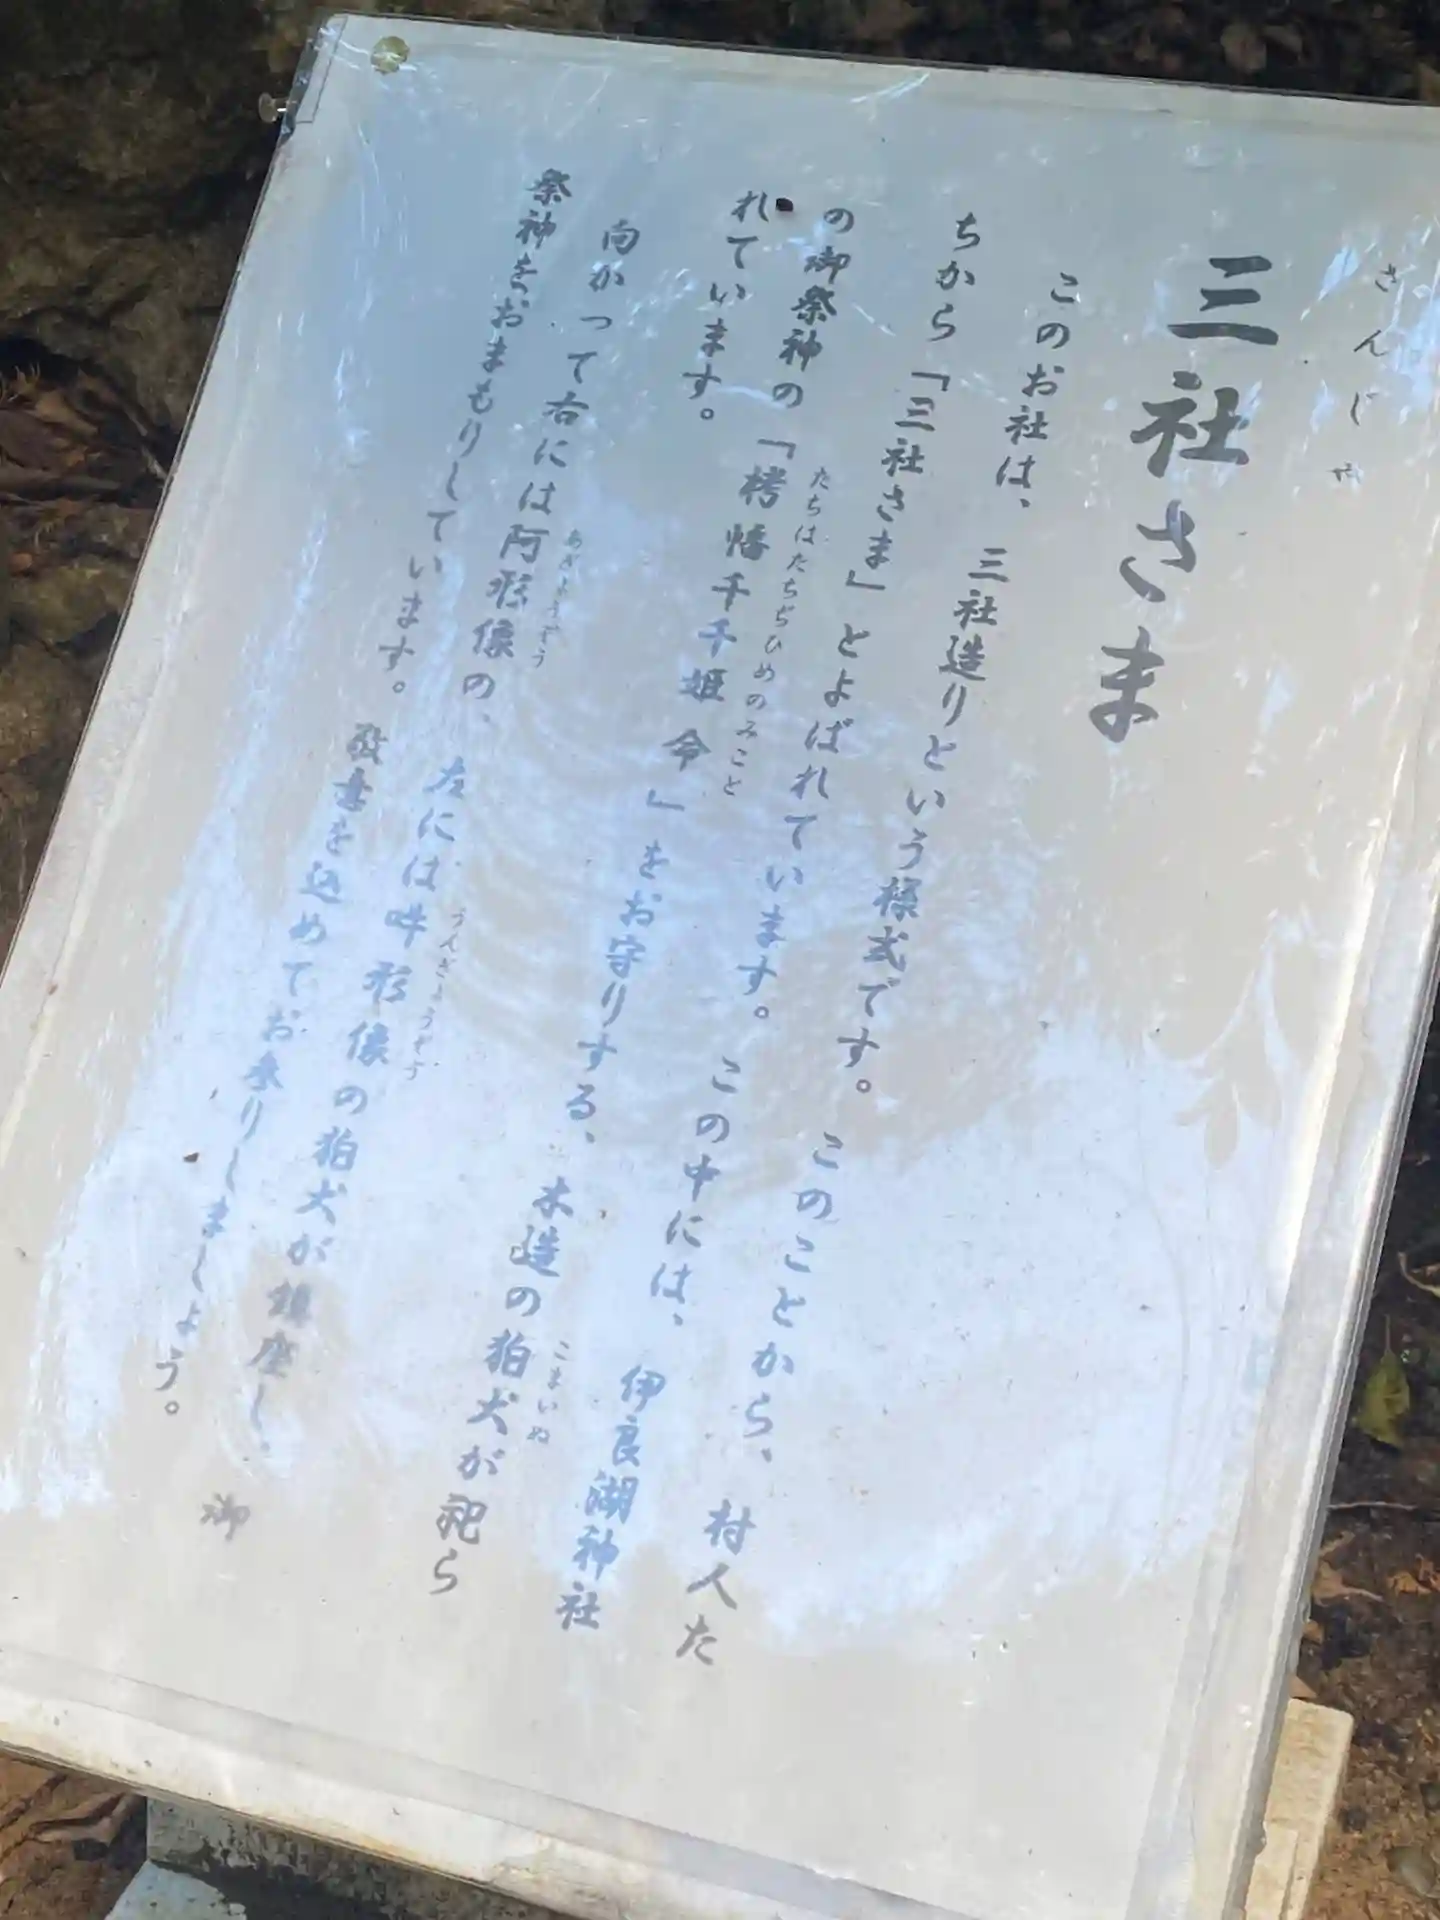 さんじゃ
三社さま
このお社は、三社造りという様式です。このことから、村人た
ちから「三社さま」とよばれています。この中には、伊良湖神社
たちはたちぢひめのみこと
こまいぬ
の御祭神の「栲幡千千姫命」をお守りする、木造の狛犬が祀ら
れています。
あぎょうぞう
うんぎょうぞう
向かって右には阿形像の、左には吽形像の狛犬が鎮座し、御
祭神をおまもりしています。敬意を込めてお参りしましょう。